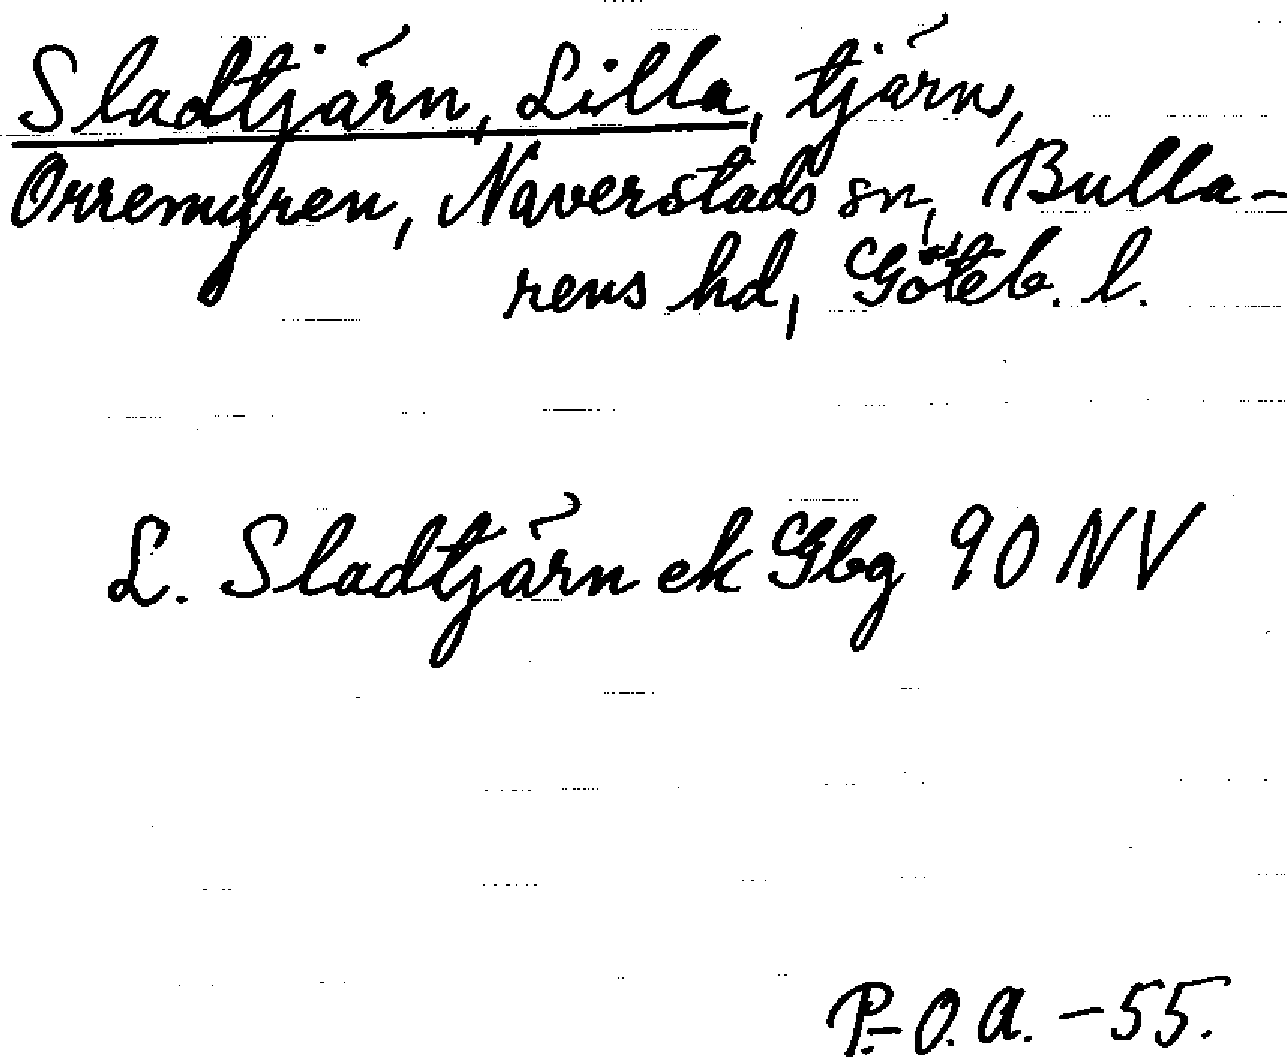 Sladtjärn, Lilla, tjärn,
Orremyren, Naverstads sn, Bulla-
rens hd, Göteb. l.
L. Sladtjärn ek Gbg 90 NV
P.-O. A. -55.